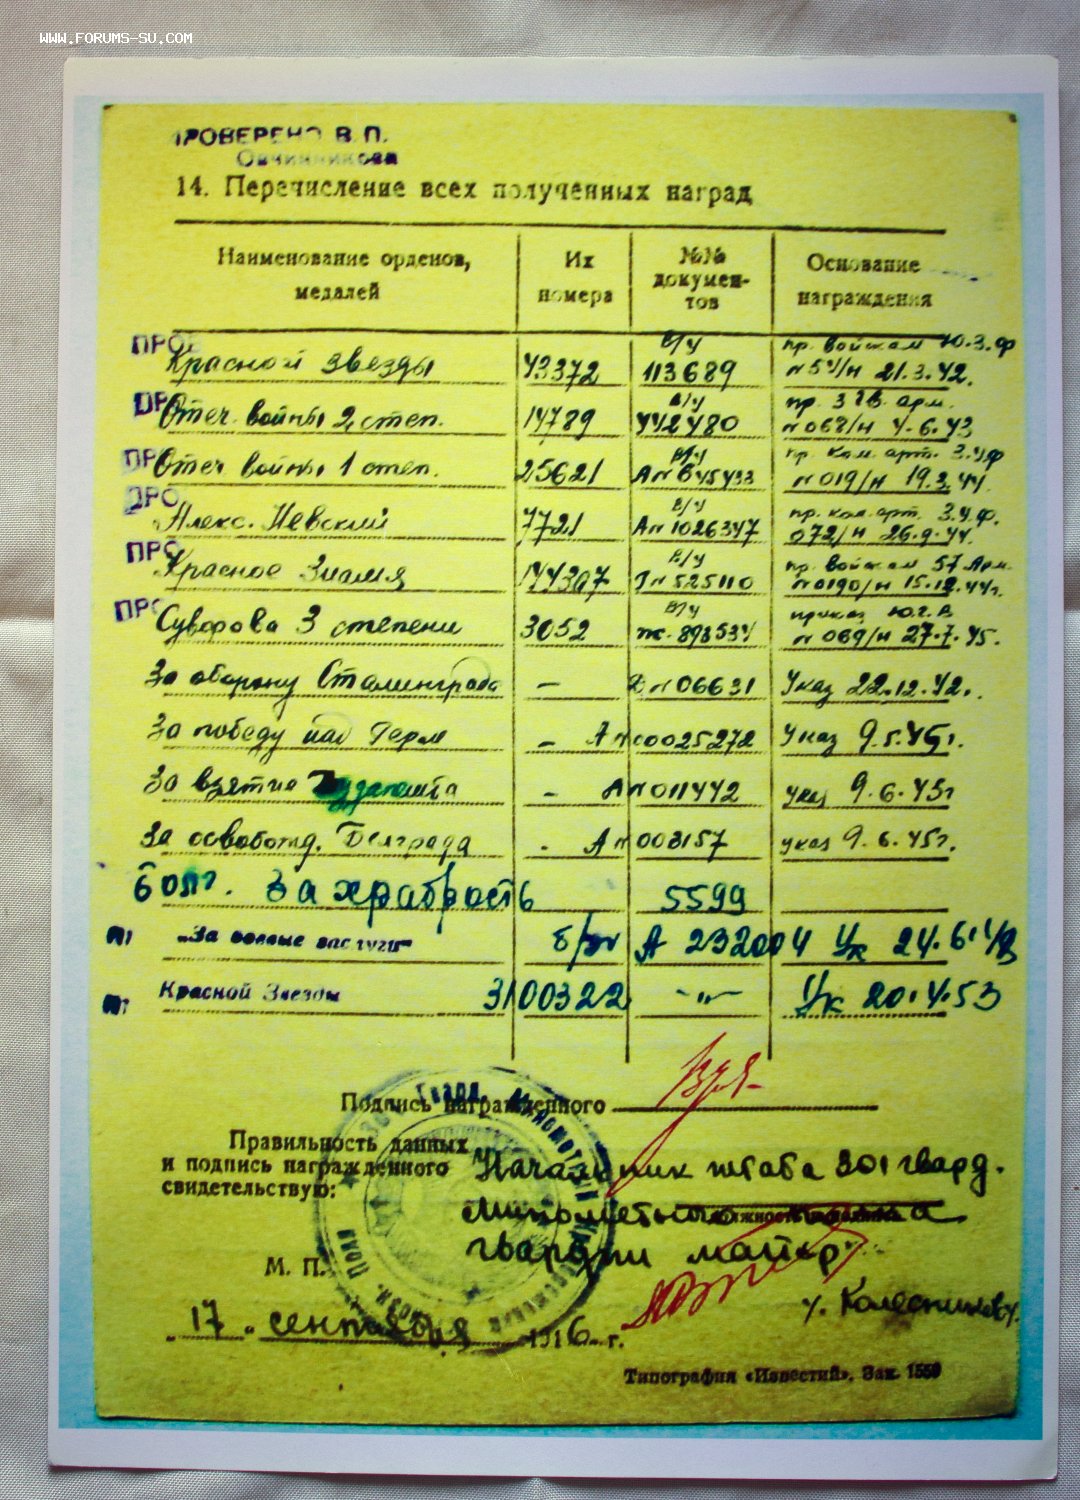 WWW.FORUMS-SU.COM
ПРОВЕРЕНО В. П.
Овчинникова
14. Перечисление всех полученных наград
Наименование орденов, медалей
Их номера
№№ документов
Основание награждения
ПРОВ Красной звезды 43372 в/у 113689 пр. войскам Ю.З.Ф №54/н 21.3.42.
ПРО Отеч. войны 2 степ. 14789 в/у 442480 пр. 3 гв. арм. №068/н 4.6.43
ПРО Отеч войны 1 степ. 25621 в/у А№645433 пр. ком. арт. 3.У.Ф №019/н 19.3.44.
ПРО Алекс. Невский 7721 в/у А№1026347 пр. ком. арт. 3.У.Ф. 072/н 26.9.44.
ПРО Красное Знамя 144307 в/у Г№525110 пр. войскам 57 Арм. №0190/н 15.12.44г.
ПРО Суворова 3 степени 3052 в/у 893534 приказ Ю.Г.В №069/н 27.7.45.
За оборону Сталинграда – №06631 Указ 22.12.42.
За победу над Герм – А№0025272 Указ 9.5.45г.
За взятие Будапешта – А№011442 указ 9.6.45г
За освобожд. Белграда - А№003157 указ 9.6.45г.
болг. За храбрость 5599
„За боевые заслуги" б/№ А 232004 Ук 24.6.48
Красной Звезды 3100322 –"– Ук 20.4.53
Подпись награжденного
Правильность данных
и подпись награжденного
свидетельствую:
Начальник штаба 301 гвард.
минометного полка
гвардии майор
/. Колесников/.
М. П.
„17„ сентября 1946 г.
Типография «Известий». Зак. 1559